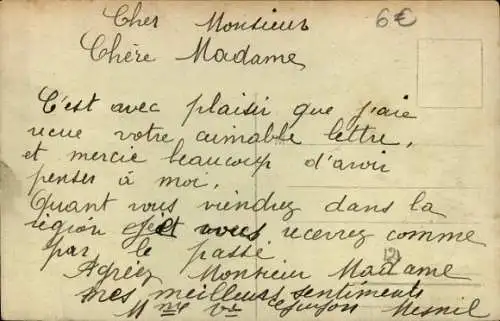 Cher Monsieur 6€
Chère Madame,
C'est avec plaisir que j'aie
reçue votre aimable lettre,
et mercie beaucoup d'avoir
penser à moi,
Quant vous viendrez dans la
région et vous recevrez comme
par le passé
Agréez Monsieur Madame
mes meilleurs sentiments
Mme Vve Mesnil